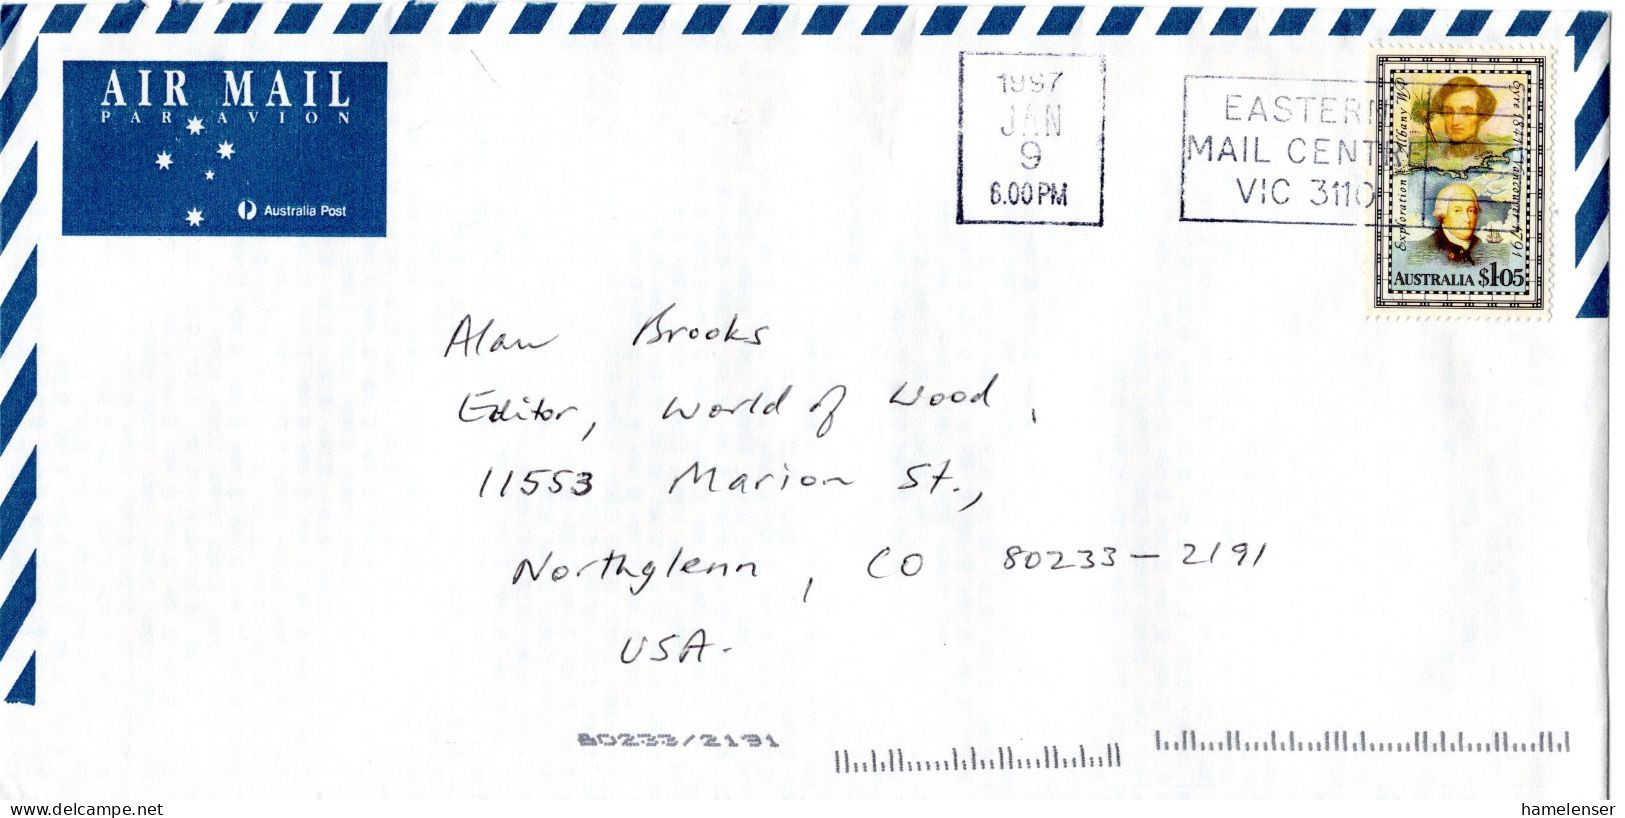 AIR MAIL
PAR AVION
Australia Post
1997
JAN
9
6.00PM
EASTERN
MAIL CENTRE
VIC 3110
Exploration Albany WA
Eyre 1841 Vancouver 1791
AUSTRALIA $1.05
Alan Brooks
Editor, World of Wood,
11553 Marion St.,
Northglenn, CO 80233-2191
USA.
80233/2191
www.delcampe.net
hamelenser